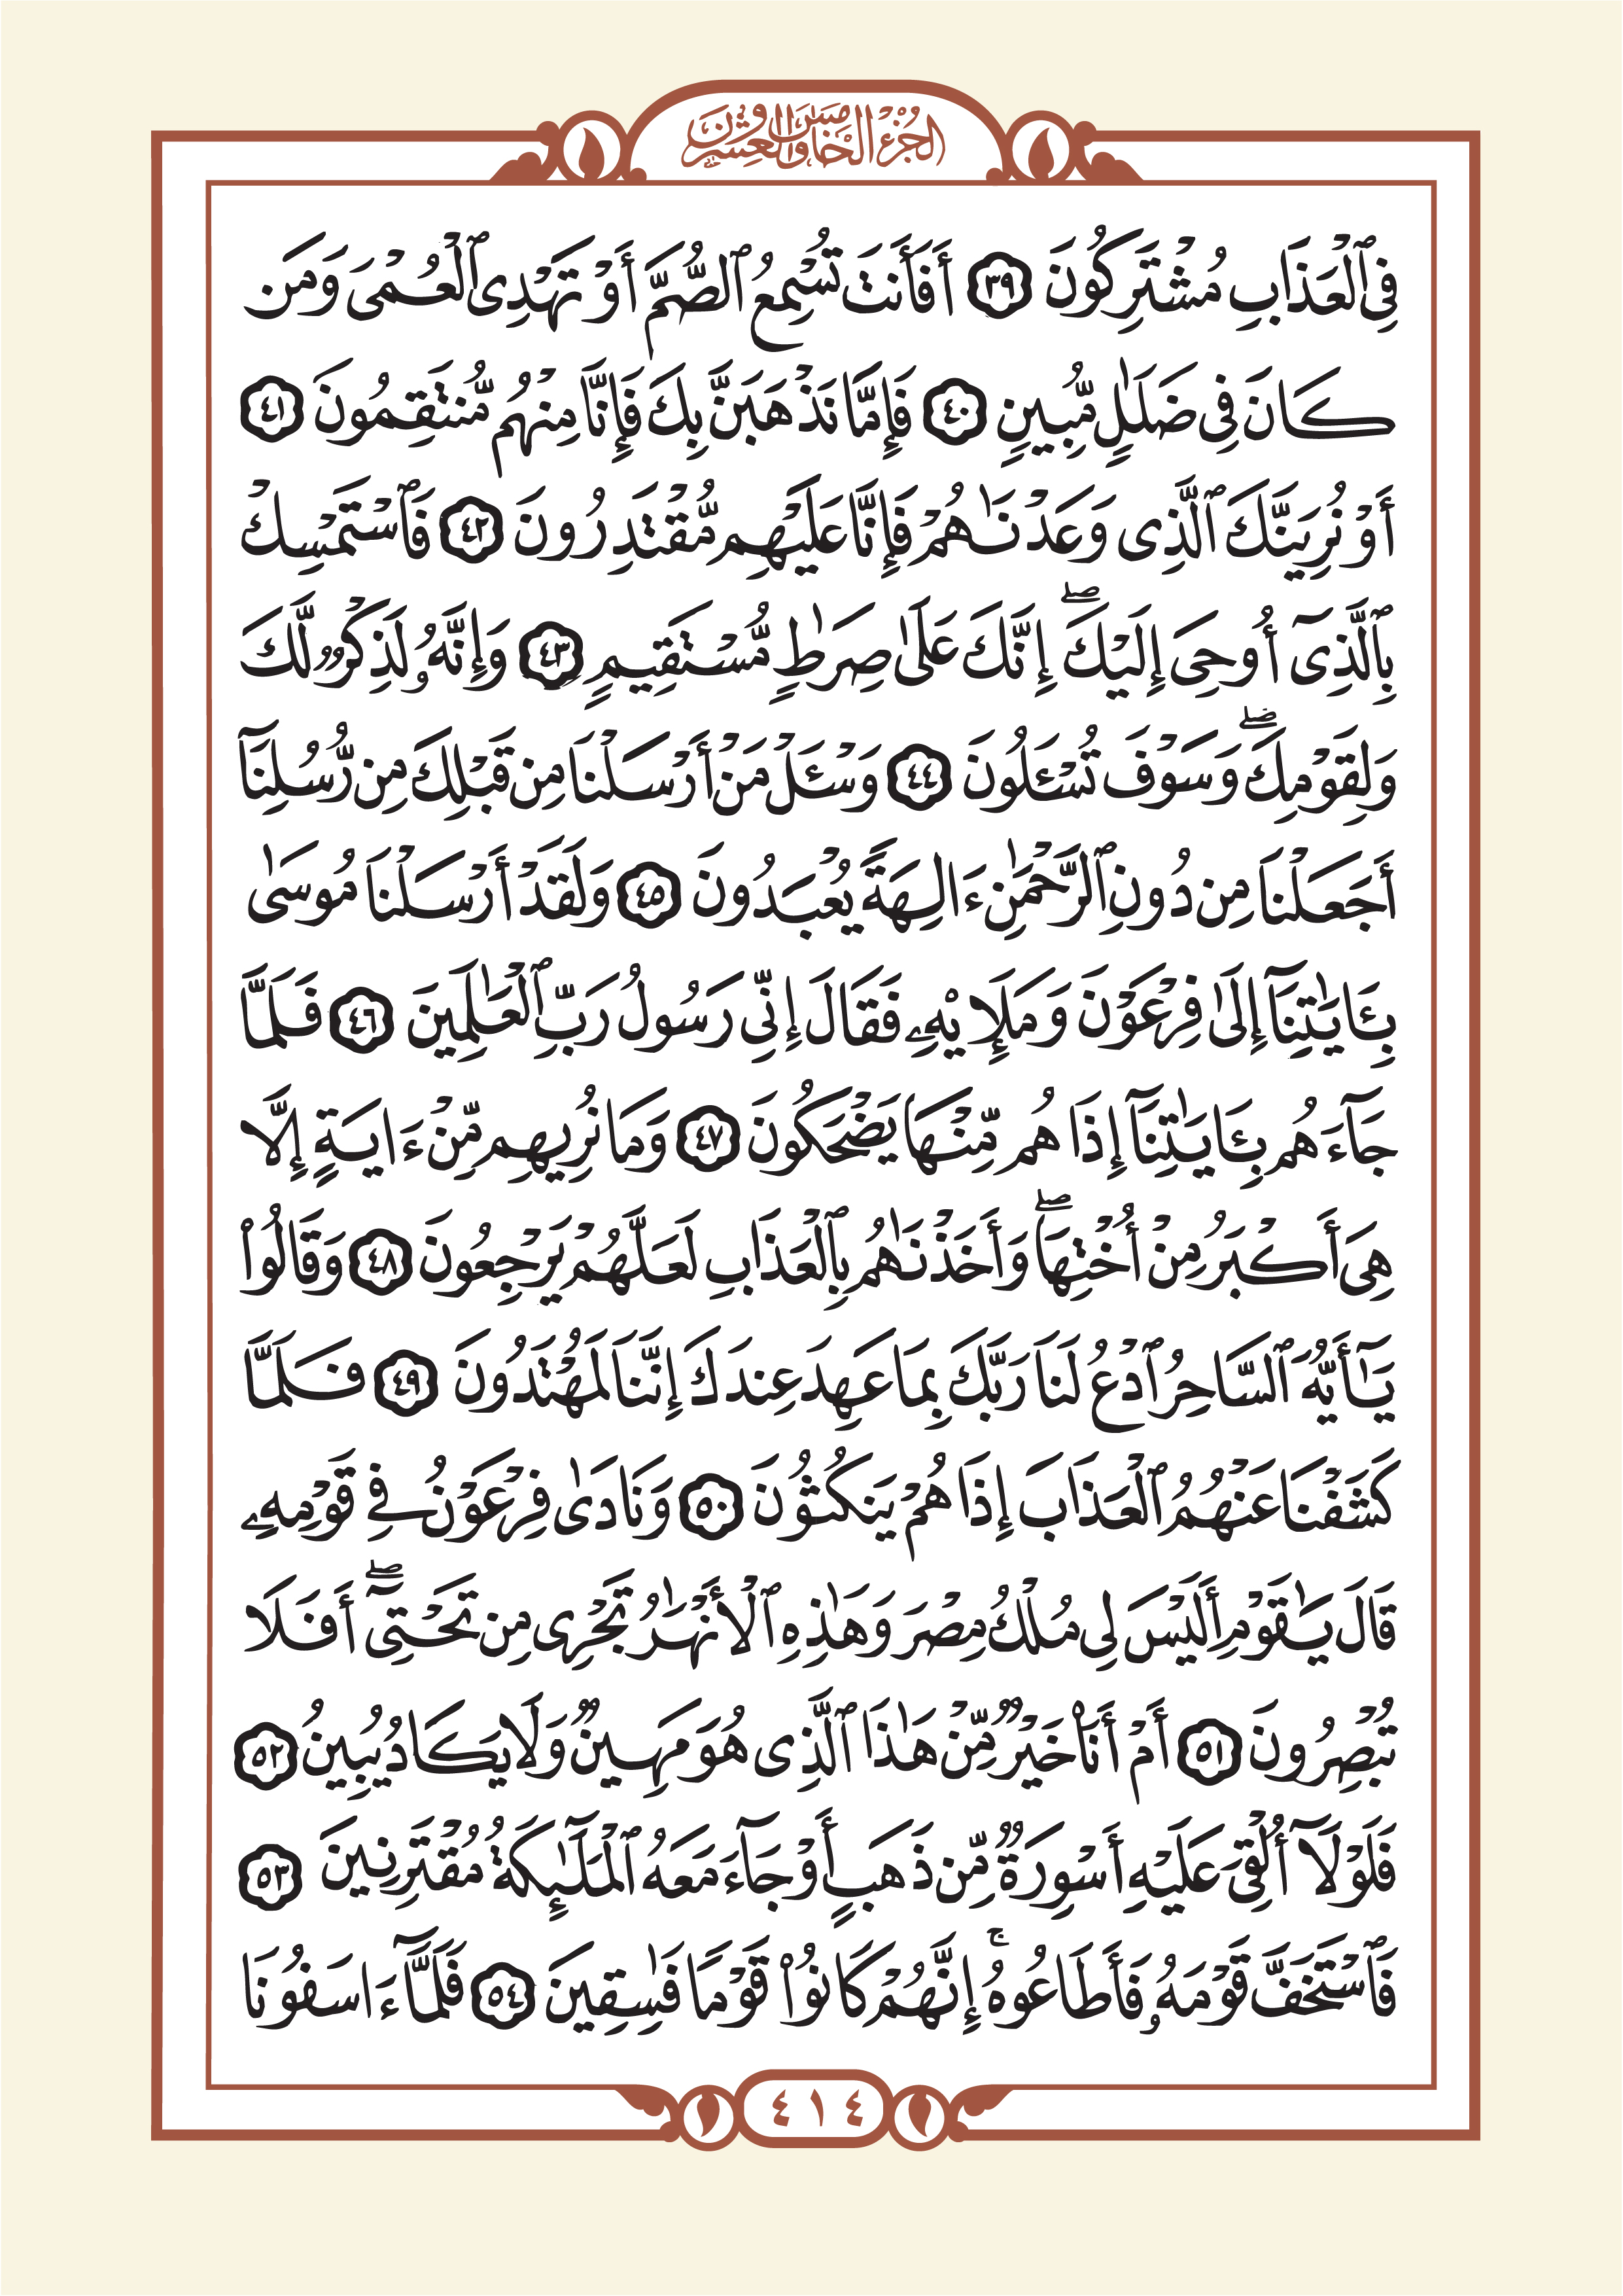 الجزء الخامس والعشرون
فِى ٱلْعَذَابِ مُشْتَرِكُونَ ٣٩ أَفَأَنتَ تُسْمِعُ ٱلصُّمَّ أَوْ تَهْدِى ٱلْعُمْىَ وَمَن
كَانَ فِى ضَلَٰلٍ مُّبِينٍ ٤٠ فَإِمَّا نَذْهَبَنَّ بِكَ فَإِنَّا مِنْهُم مُّنتَقِمُونَ ٤١
أَوْ نُرِيَنَّكَ ٱلَّذِى وَعَدْنَٰهُمْ فَإِنَّا عَلَيْهِم مُّقْتَدِرُونَ ٤٢ فَٱسْتَمْسِكْ
بِٱلَّذِىٓ أُوحِىَ إِلَيْكَ ۖ إِنَّكَ عَلَىٰ صِرَٰطٍ مُّسْتَقِيمٍ ٤٣ وَإِنَّهُۥ لَذِكْرٌ لَّكَ
وَلِقَوْمِكَ ۖ وَسَوْفَ تُسْـَٔلُونَ ٤٤ وَسْـَٔلْ مَنْ أَرْسَلْنَا مِن قَبْلِكَ مِن رُّسُلِنَآ
أَجَعَلْنَا مِن دُونِ ٱلرَّحْمَٰنِ ءَالِهَةً يُعْبَدُونَ ٤٥ وَلَقَدْ أَرْسَلْنَا مُوسَىٰ
بِـَٔايَٰتِنَآ إِلَىٰ فِرْعَوْنَ وَمَلَإِي۟هِۦ فَقَالَ إِنِّى رَسُولُ رَبِّ ٱلْعَٰلَمِينَ ٤٦ فَلَمَّا
جَآءَهُم بِـَٔايَٰتِنَآ إِذَا هُم مِّنْهَا يَضْحَكُونَ ٤٧ وَمَا نُرِيهِم مِّنْ ءَايَةٍ إِلَّا
هِىَ أَكْبَرُ مِنْ أُخْتِهَا ۖ وَأَخَذْنَٰهُم بِٱلْعَذَابِ لَعَلَّهُمْ يَرْجِعُونَ ٤٨ وَقَالُوا۟
يَٰٓأَيُّهَ ٱلسَّاحِرُ ٱدْعُ لَنَا رَبَّكَ بِمَا عَهِدَ عِندَكَ إِنَّنَا لَمُهْتَدُونَ ٤٩ فَلَمَّا
كَشَفْنَا عَنْهُمُ ٱلْعَذَابَ إِذَا هُمْ يَنكُثُونَ ٥٠ وَنَادَىٰ فِرْعَوْنُ فِى قَوْمِهِۦ
قَالَ يَٰقَوْمِ أَلَيْسَ لِى مُلْكُ مِصْرَ وَهَٰذِهِ ٱلْأَنْهَٰرُ تَجْرِى مِن تَحْتِىٓ ۖ أَفَلَا
تُبْصِرُونَ ٥١ أَمْ أَنَا۠ خَيْرٌ مِّنْ هَٰذَا ٱلَّذِى هُوَ مَهِينٌ وَلَا يَكَادُ يُبِينُ ٥٢
فَلَوْلَآ أُلْقِىَ عَلَيْهِ أَسْوِرَةٌ مِّن ذَهَبٍ أَوْ جَآءَ مَعَهُ ٱلْمَلَٰٓئِكَةُ مُقْتَرِنِينَ ٥٣
فَٱسْتَخَفَّ قَوْمَهُۥ فَأَطَاعُوهُ ۚ إِنَّهُمْ كَانُوا۟ قَوْمًا فَٰسِقِينَ ٥٤ فَلَمَّآ ءَاسَفُونَا
٤١٤